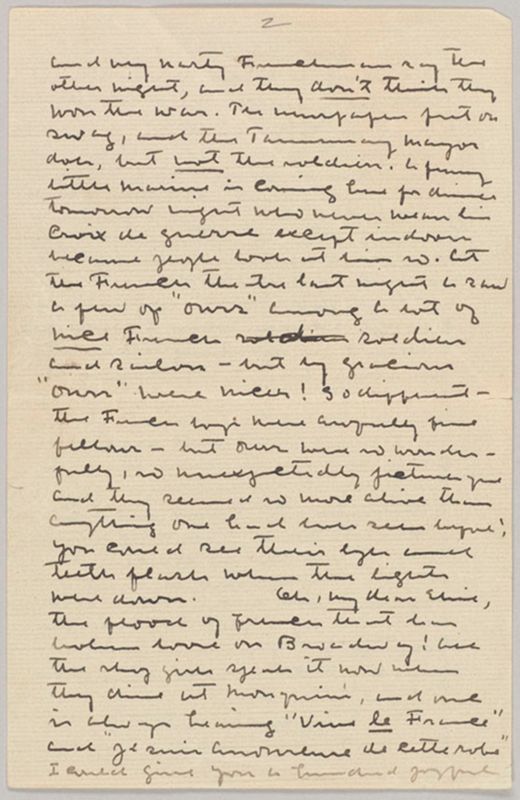 2
and my nasty Frenchman say the
other night, and they don't think they
won the war. The newspapers put on
swag, and the Tammany Mayor
does, but not the soldiers. A funny
little marine is coming here for dinner
tomorrow night who never wears his
Croix de guerre except indoors
because people look at him so. At
the French theatre last night I saw
a few of "ours" among a lot of
nice French soldiers
and sailors - but by gracious
"ours" were nicer! So different -
the French boys were awfully fine
fellows - but ours were so wonder-
fully, so unexpectedly picturesque
and they seemed so more alive than
anything one had ever seen before!
You could see their eyes and
teeth flash when the lights
were down. Oh, my dear Elsie,
the flood of French that has
broken loose on Broadway! All
the shop girls speak it now when
they dine at Mouquin's, and one
is always hearing "Vive le France"
and "Je suis amoureuse de cette robe"
I could give you a hundred joyful